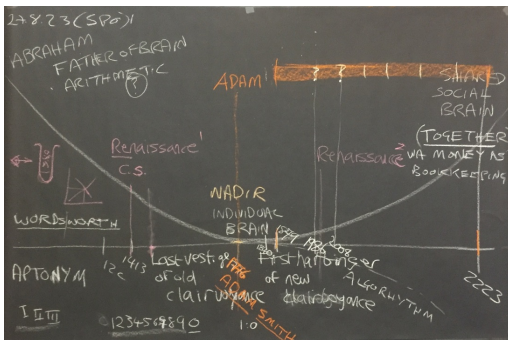 2+8.23 (SPG)
ABRAHAM
FATHER OF BRAIN
ARITHMETIC
?
ADAM
? ?
SHARED
SOCIAL
BRAIN
(TOGETHER)
VIA MONEY AS
BOOKKEEPING
Renaissance 1
C.S.
Renaissance 2
NADIR
INDIVIDUAL
BRAIN
WORDSWORTH
12C 1413 1776 1879 1986 2008 2223
APTONYM
Last vestige
of old
clairvoyance
First harbinger
of new
clairvoyance
ALGORHYTHM
ADAM SMITH
I II III
1234567890
1:0